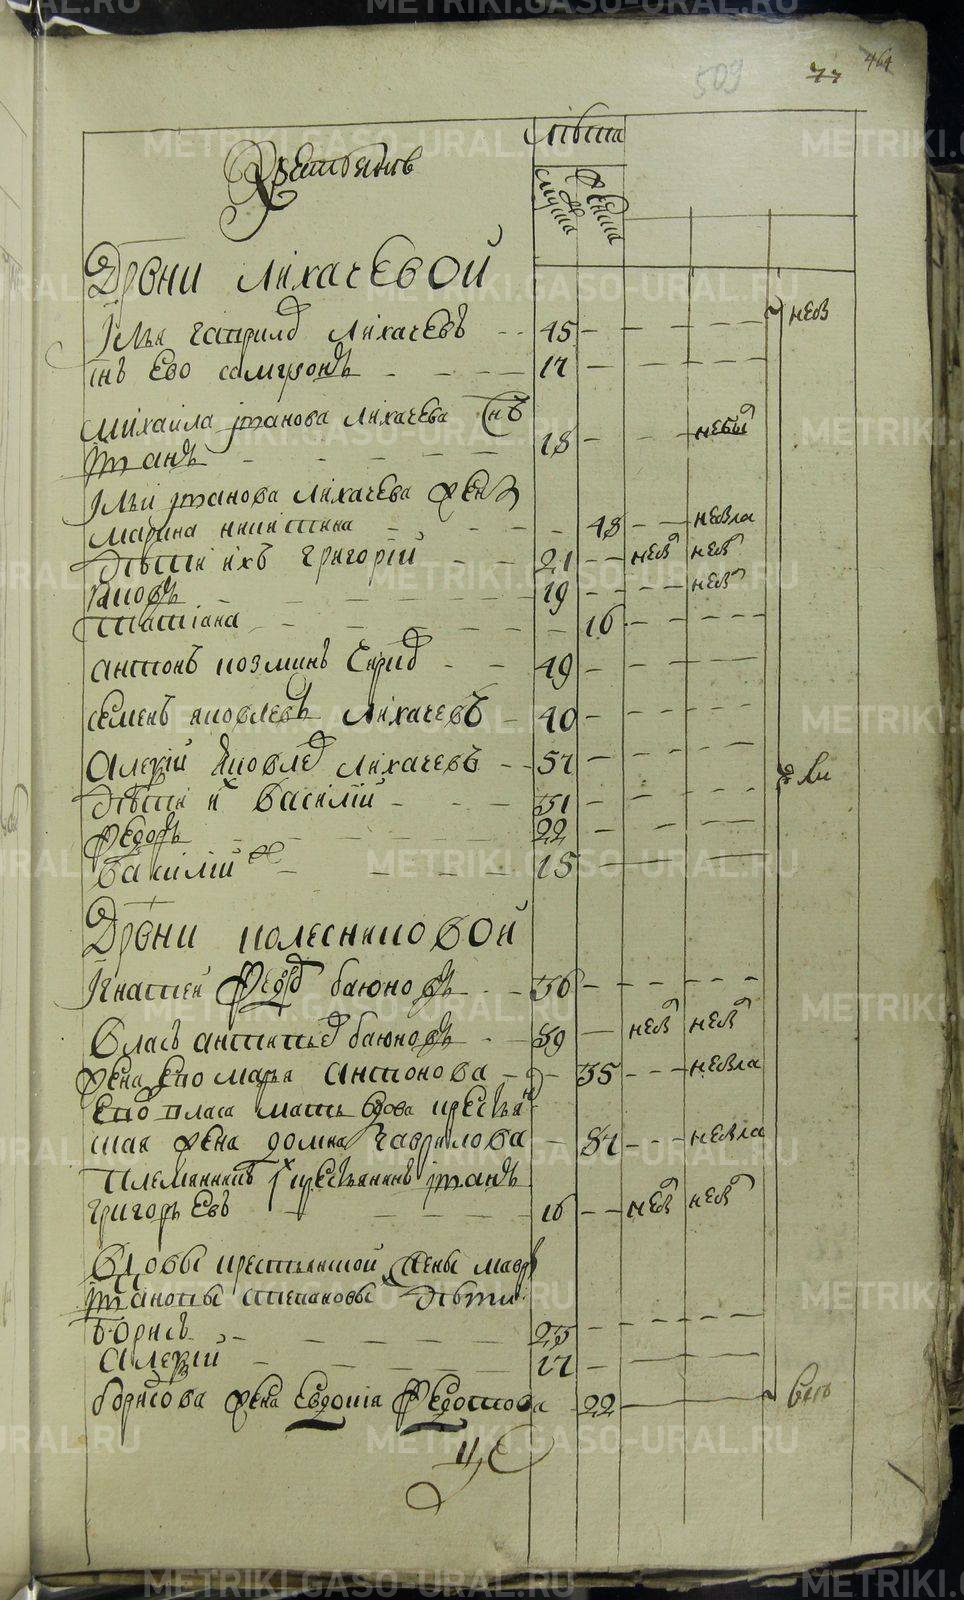 509 77 464
Крестьянъ
лѣта
мужска
женска
Дрвни лихачевой
Илья гаврилов лихачевъ 45 нев
снъ Ево самсонъ 17
михаила иванова лихачева снъ
иванъ 18 небы
Ильи иванова лихачева жена
марина никитина 48 невла
дѣти ихъ григорій 21 нев нев
яковъ 19 нев
татіана 16
антонъ козминъ 49
семенъ яковлевъ лихачевъ 40
Алексій яковлев лихачевъ 57
дѣти их василій 31
федоръ 22
василій же 15
Дрвни колесниковой
Игнатей федоров баюновъ 36
власъ антипьев баюновъ 39 нев нев
жена Ево марья антонова 35 невла
Ево власа мать вдова крестья
ская жена домна гаврилова 57 невла
племянникъ их крестьянинъ иванъ
григорьевъ 16 нев нев
вдовы крестьянской жены мавры
ивановы степановы дѣти
борисъ 23
алексій 17
борисова жена Евдокіа федотова 22
METRIKI.GASO-URAL.RU